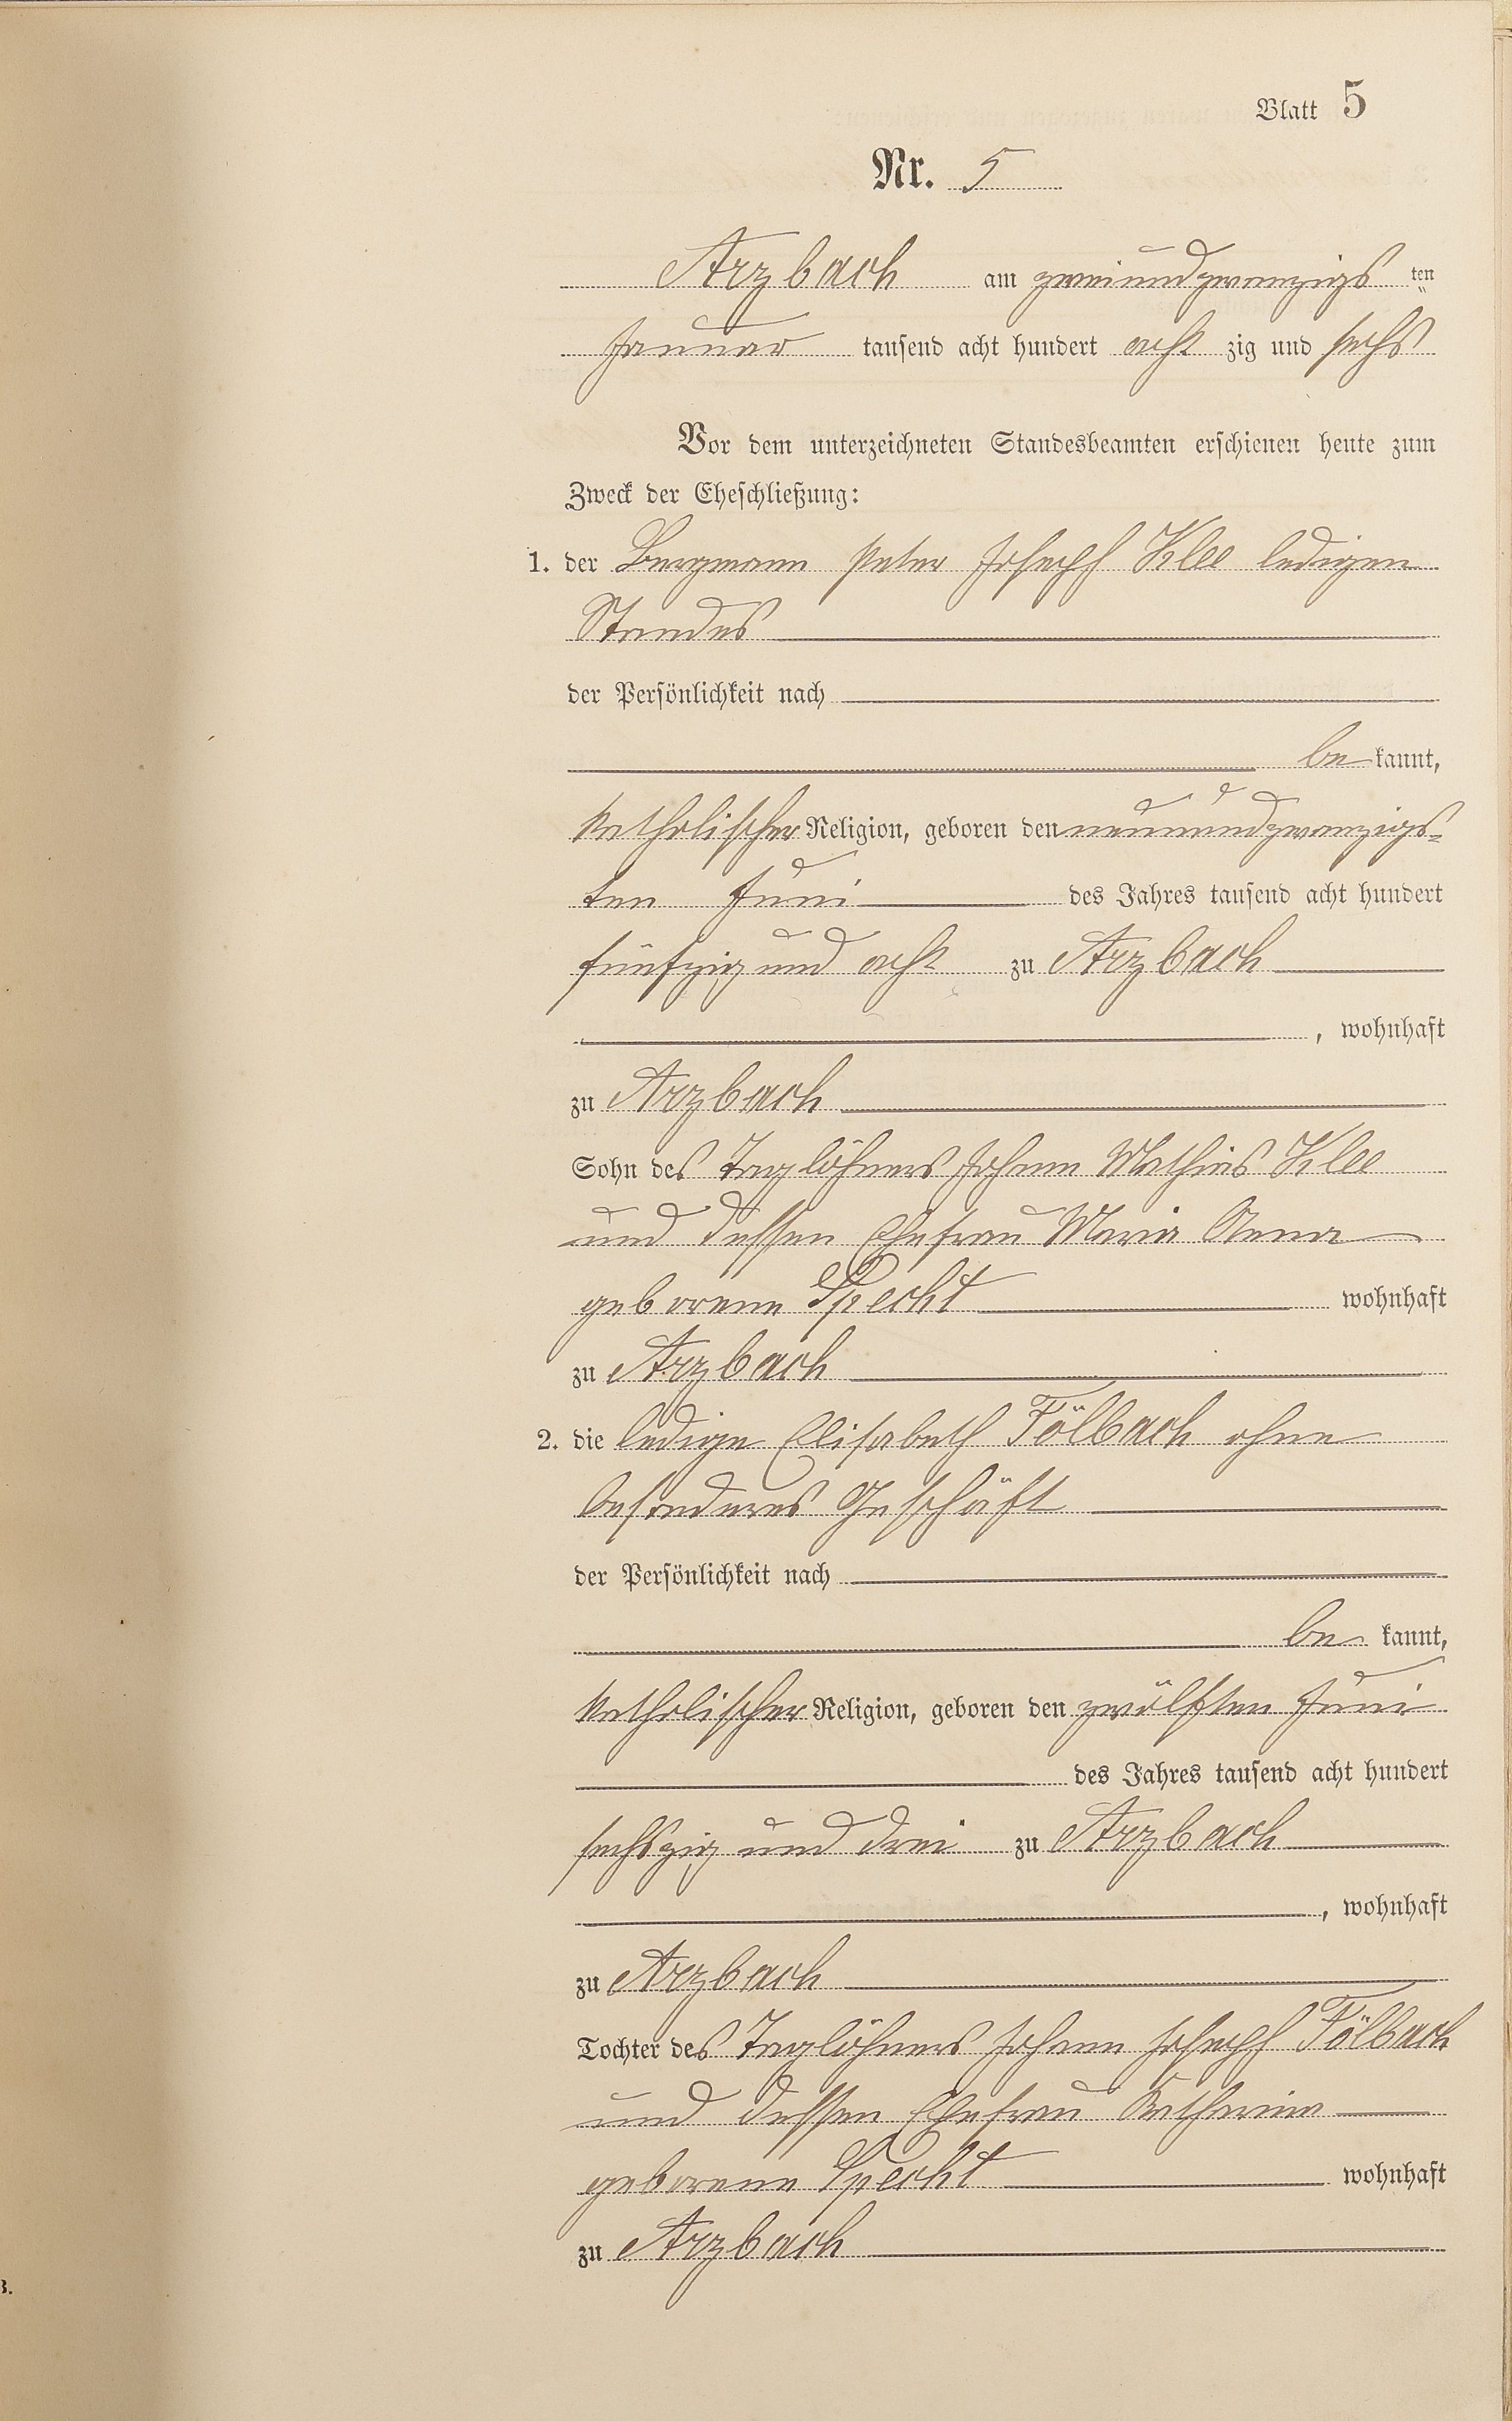 Blatt 5
Nr. 5
Arzbach am zweiundzwanzigs ten
Januar tausend acht hundert acht zig und sechs
Vor dem unterzeichneten Standesbeamten erschienen heute zum
Zweck der Eheschließung:
1. der Bergmann Peter Joseph Klee ledigen
Standes
der Persönlichkeit nach
be kannt,
katholischer Religion, geboren den neunundzwanzigs-
ten Juni des Jahres tausend acht hundert
fünfzig und acht zu Arzbach
, wohnhaft
zu Arzbach
Sohn des Taglöhners Johann Mathias Klee
und dessen Ehefrau Maria Anna
geborene Specht wohnhaft
zu Arzbach
2. die ledige Elisabeth Fölbach ohne
besonderes Geschäft
der Persönlichkeit nach
be kannt,
katholischer Religion, geboren den zwölften Juni
des Jahres tausend acht hundert
sechszig und drei zu Arzbach
, wohnhaft
zu Arzbach
Tochter des Taglöhners Johann Joseph Fölbach
und dessen Ehefrau Katharina
geborene Specht wohnhaft
zu Arzbach
B.